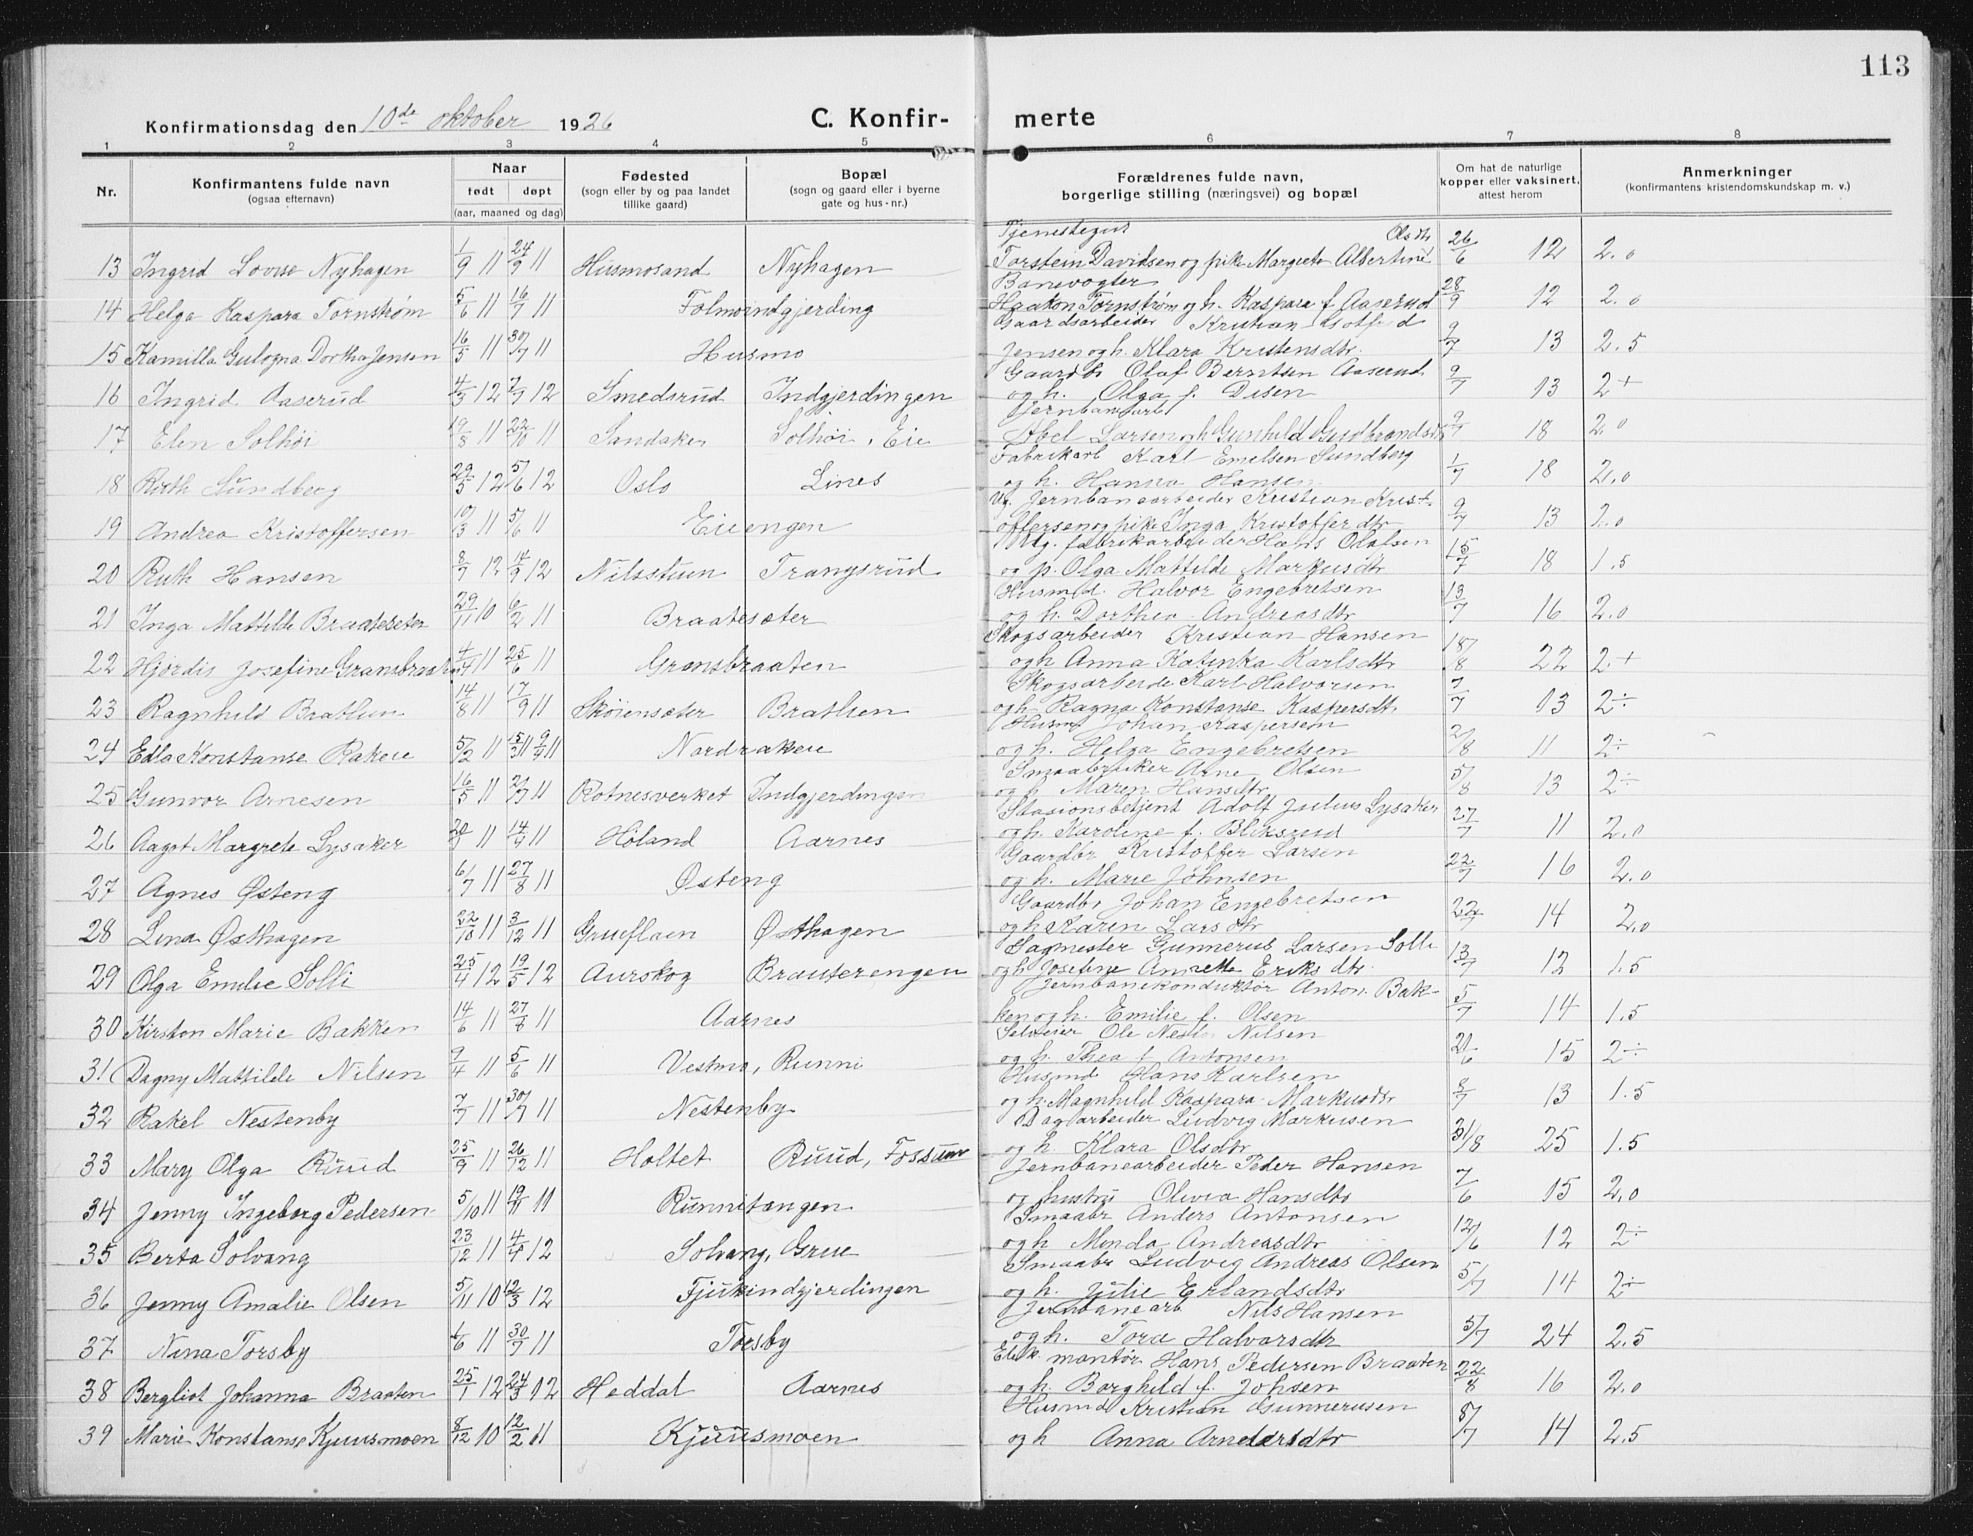 113
Konfirmationsdag den 10de oktober 1926 C. Konfir- merte
1 2 3 4 5 6 7 8
Nr. Konfirmantens fulde navn (ogsaa efternavn) Naar født døpt (aar, maaned og dag) Fødested (sogn eller by og paa landet tillike gaard) Bopæl (sogn og gaard eller i byerne gate og hus-nr.) Forældrenes fulde navn, borgerlige stilling (næringsvei) og bopæl Om hat de naturlige kopper eller vaksinert, attest herom Anmerkninger (konfirmantens kristendomskundskap m. v.)
Tjenestegut Olsdtr
13 Ingrid Lovise Nyhagen 1/9 11 24/9 11 Husmosand Nyhagen Torstein Davidsen og pike Margrete Albertine 26/6 12 2.0
Banevogter
14 Helga Kaspara Tornstrøm 5/6 11 16/7 11 Folmoindgjerding Haakon Tornstrøm og h. Kaspara f. Aaserud 28/9 12 2.0
Gaardsarbeider Kristian
15 Kamilla Dorthea Jensen 16/5 11 30/7 11 Husmo Jensen og h. Klara Kristensdtr. 9/7 13 2.5
Gaardbr Olaf Berntsen Aaserud
16 Ingrid Aaserud 4/5 12 7/7 12 Smedsrud Indgjerdingen og h. Olga f. Disen 9/7 13 2+
Jernbanearb
17 Elen Solhöi 19/8 11 22/10 11 Sandaker Solhöi, Eie Abel Larsen og h Gunhild Guldbrandsdtr 9/7 18 2.0
Fabrikarb Karl Emelsen Sundberg
18 Ruth Sundberg 29/5 12 5/6 12 Oslo Lines og h. Hanna Hansen 1/7 18 2.0
Ug. Jernbanearbeider Kristian Krist-
19 Andrea Kristoffersen 10/3 11 5/6 11 Eieengen offersen og pike Inga Kristofferdtr 9/7 13 2.0
Ug. fabrikarbeider Hans Olalsen
20 Ruth Hansen 8/7 12 14/9 12 Nilsstuen Trangsrud og p. Olga Mattilde Markusdtr 15/7 18 1.5
Husmd. Halvor Engebretsen
21 Inga Mattilde Braateseter 29/11 10 6/2 11 Braatesæter og h. Dorthea Andreasdtr 13/7 16 2.0
Skogsarbeider Kristian Hansen
22 Hjørdis Josefine Gransbraaten 4/4 11 25/6 11 Gransbraaten og h Anna Katinka Karlsdtr 18/8 22 2.+
Skogsarbeide Karl Halvorsen
23 Ragnhild Brathen 14/8 11 17/9 11 Skøiensæter Brathen og h. Ragna Konstanse Kaspersdtr 7/7 13 2÷
Husmd Johan Kaspersen
24 Edla Konstanse Rakeie 5/2 11 15/3 11 9/4 11 Nordrakeie og h. Helga Engebretsen 2/8 11 2÷
Smaabruker Arne Olsen
25 Gunvor Arnesen 16/5 11 2/7 11 Rotnesverket Indgjerdingen og h. Maren Hansdtr 5/8 13 2÷
Stasionsbetjent Adolf Julius Lysaker
26 Aagot Margrete Lysaker 11 14/4 11 Høland Aarnes og h. Karoline f. Bliksrud 27/7 11 2.0
Gaardbr Kristoffer Larsen
27 Agnes Østeng 6/7 11 27/8 11 Østeng og h. Marie Johnsen 22/7 16 2.0
Gaardbr Johan Engebretsen
28 Lina Østhagen 22/10 11 3/12 11 Grueflaen Østhagen og h Karen Larsdtr 22/7 14 2.0
Sagmester Gunnerius Larsen Solli
29 Olga Emilie Solli 25/4 12 19/5 12 Aurskog Brauterengen og h Josefine Annette Eriksdtr. 13/7 12 1.5
Jernbanekonduktør Anton Bak-
30 Kirsten Marie Bakken 14/6 11 27/8 11 Aarnes ken og h. Emilie f. Olsen 5/7 14 1.5
Selveier Ole Nilsen
31 Dagny Mattilde Nilsen 9/4 11 5/6 11 Vestmo, Runni og h. Thea f Antonsen 21/6 15 2÷
Husmd Hans Karlsen
32 Rakel Nestenby 7/7 11 30/7 11 Nestenby og h. Magnhild Kaspara Markusdtr 8/7 13 1.5
Dagarbeider Ludvig Markusen
33 Mary Olga Ruud 25/9 11 26/12 11 Holtet Ruud, Fossum og h. Klara Olsdtr 31/8 25 1.5
Jernbanearbeider Peder Hansen
34 Jenny Ingeborg Pedersen 5/10 11 19/11 11 Runnitangen og hustru Olivia Hansdtr 7/6 15 2.0
Smaabr Anders Antonsen
35 Berta Solvang 23/12 11 4/4 12 Solvang, Grue og h Monda Andreasdtr 12/6 12 2÷
Smaabr Ludvig Andreas Olsen
36 Jenny Amalie Olsen 5/11 10 12/3 12 Fjukindgjerdingen og h. Julie Erlandsdtr 5/7 14 2÷
Jernbanearb Nils Hansen
37 Nina Torsby 1/6 11 30/7 11 Torsby og h. Tora Halvorsdtr 5/7 24 2.5
Elek. montør Hans Pedersen Braaten
38 Bergliot Johanna Braaten 25/1 12 24/3 12 Heddal Aarnes og h. Borghild f. Johsen 22/8 16 2.0
Husmd Kristian Gunnerusen
39 Marie Konstanse Kjuusmoen 8/12 10 12/2 11 Kjuusmoen og h Anna Arnesdtr 8/7 14 2.5